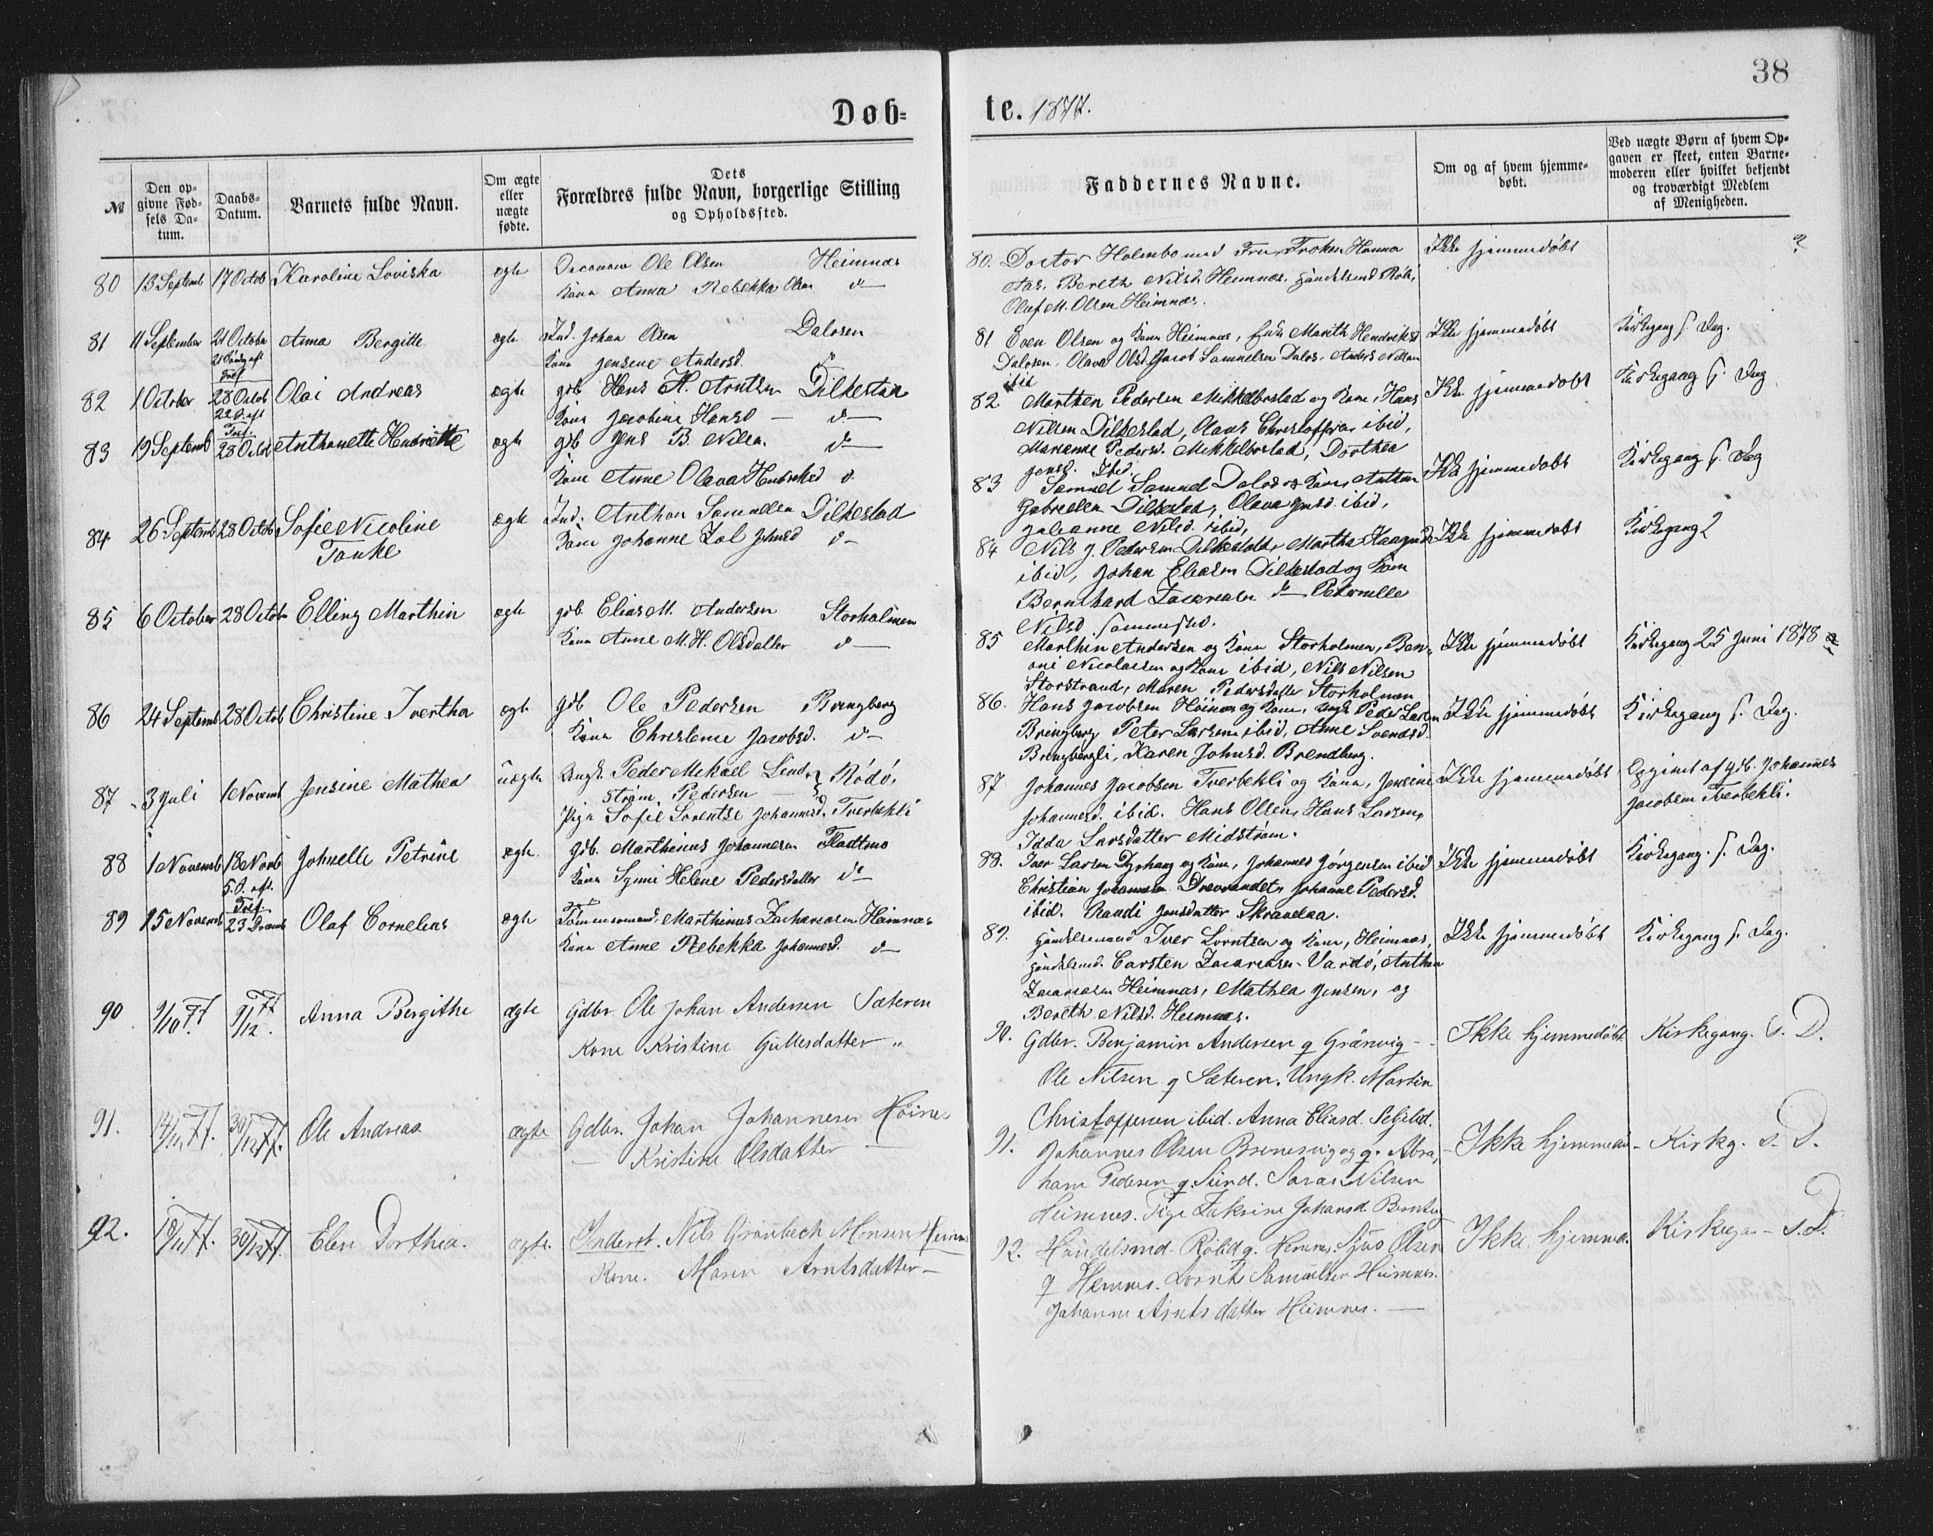 38
Døb=
te. 1877.
№
Den op-
givne Fød-
sels Da-
tum.
Daabs-
Datum.
Barnets fulde Navn.
Om ægte
eller
uægte
fødte.
Dets
Forældres fulde Navn, borgerlige Stilling
og Opholdssted.
Faddernes Navne.
Om og af hvem hjemme-
døbt.
Ved uægte Børn af hvem Op-
gaven er skeet, enten Barne-
moderen eller hvilket bekjendt
og troværdigt Medlem
af Menigheden.
80 13 Septemb 17 Octob Karoline Loviska ægte Ole Olsen Heimnæs
Kone Anna Rebekka Olsen d—
81 11 September 21 October Anna Bergitte ægte Ind. Johan Olsen Dalosen
21 Søndg eft
Tref
Kone Jensine Andersd. d
82 1 October 28 Octob Olai Andreas ægte gdb. Hans H. Arntsen Dilkestad
22 S. eft
Tref.
Kone Jacobine Hansd — d—
83 19 Septemb 28 Octob Anthonette Henriette ægte gdb Jens B. Nilsen d—
Kone Anne Olava Hendriksd d.
84 26 Septemb 28 Octob Sofie Nicoline ægte Ind. Anthon Samuelsen Dilkestad
Tonke Kone Johanne Zal Johnsd d—
85 6 October 28 Octob Elling Marthin ægte gdb. Elias M. Andersen Storholmen
Kone Anne M. H. Olsdatter d—
86 24 Septemb 28 Octob Christine Ivertha ægte gdb Ole Pedersen Brengberg
Kone Christine Jacobsd. d—
87 3 Juli 1 Novemb Jensine Mathea uægte Ungk. Peder Mikael Lind- Rödö,
strøm Pedersen —
Pige Sofie Lorentse Johannesd. Tverbekli
88 1 Novemb 18 Novb Johnelle Petrine ægte. gdb. Marthinus Johannesen Fladtmo
5. S. eft.
Tref.
Kone Synni Helene Pedersdatter d—
89 15 Novemb 23 Decemb Olaf Cornelius ægte Tømmermand. Marthinus Zachariasen Heimnæs
Kone Anne Rebekka Johannesd. d—
90 9/10 77 9/12 77 Anna Bergithe ægte Gdbr. Ole Johan Andersen Sæteren
Kone Kristine Gullesdatter „
91. 14/11 77. 30/12 77. Ole Andreas ægte Gdbr. Johan Johannesen Höinæs
— Kristine Olsdatter —
92. 18/11 77. 30/12 77. Elen Dorthea. ægte. Inderst. Nils Grønbech Monsen Heimn
Kone. Maren Arntsdatter —
80. Doctor Holmbo med Frue, Frøken Hanna
Aas. Bereth Nilsd Heimnæs, Handelsmd
Oluf M. Olsen Heimnæs.
Ikke hjemmedøbt ?
81 Even Olsen og Kone Heimnæs, Enke Marith Hendriksd
Dalosen. Olava Olsd Jacob Samuelsen Dalos. Anders Nilsen
ibid
Ikke hjemmedøbt Kirkegang s. Dag.
82. Marthen Pedersen Mikkelborstad og Kone, Hans
Nilsen Dilkestad, Olaus Christoffersen ibid,
Marianne Pedersd. Mikkelborstad, Dorthea
Jensd. Ibid.
Ikke hjemmedøbt Kirkegang s. Dag
83 Samuel Samuels Dalos og Kone, Anthon
Gabrielsen Dilkestad, Olava Jensd ibid,
Julianne Nilsd. ibid,
Ikke hjemmedøbt Kirkegang s. Dag
84 Nils J. Pedersen Dilkestad, Martha
ibid, Johan Eliasen Dilkestad og Kone
Bernhard Zacariasen d— Peternelle
Nilsd. sammested.
Ikke hjemmedøbt Kirkegang 2
85 Marthin Andersen og Kone Storholmen, Ben-
oni Nicolaisen og Kone ibid, Nils Nilsen
Storstrand, Maren Pedersdatter Storholmen
Ikke hjemmedøbt Kirkegang 25 Juni 1878
86. Hans Jacobsen Höinæs og Kone, Ungk Peder Larsen
Brengberg Peter Larsen ibid, Anne Svendsd.
Brengbergli, Karen Johnsd. Brendberg.
Ikke hjemmedøbt Kirkegang s. Dag.
87 Johannes Jacobsen Tverbekli og Kone, Jensine
Johannesd. ibid. Hans Olsen, Hans Larsen,
Idda Larsdatter Midstrøm.
Ikke hjemmedøbt Opgivet af gdb. Johannes
Jacobsen Tverbekli.
88. Iver Larsen Dyrhaug og Kone, Johannes Jørgensen ibid
Christian Johannesen Drevvandet, Johanne Pedersd.
ibid. Randi Jensdatter Skravelaa.
Ikke hjemmedøbt Kirkegang. s. Dag.
89. Handelsmand Iver Lorntsen og Kone, Heimnæs,
Handelsmd. Carsten Zacariasen Vardö, Anthon
Zacariasen Heimnæs, Mathea Jensen, og
Bereth Nilsd. Heimnæs.
Ikke hjemmedøbt Kirkegang s. Dag.
90. Gdbr. Benjamin Andersen q Grånvig —
Ole Nilsen q Sæteren. Ungk. Martin
Christoffersen ibid. Anna Eliasd. Seljelid.
Ikke hjemmedøbt Kirkegang. s. D.
91. Johannes Olsen Brenesvig og q. Abra-
ham Pedersen q. Sund. Saras Nilsen
Heimnes. Pige Zakrine Johansd.
Ikke hjemmed — Kirkg. s. D.
92. Handelsmd q. Hemnes. Olsen
q Hemnes. Lornts Samuelsen Heimnes.
Johanna Arntsdatter Heimnes. —
Ikke hjemmed. Kirkega— s. D.